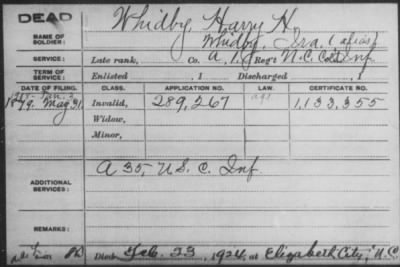 DEAD
Whidby, Harry H.
NAME OF SOLDIER:
Whidby, Ira. (alias)
SERVICE:
Late rank, Co. A, 1, Reg't N.C. Cold Inf
TERM OF SERVICE:
Enlisted , 1 Discharged , 1
DATE OF FILING. CLASS. APPLICATION NO. LAW. CERTIFICATE NO.
1879. May 31. Invalid, 289,267 1,133,355
Widow,
Minor,
ADDITIONAL SERVICES:
A 35, U.S.C. Inf.
REMARKS:
Died Feb. 23, 1924, at Elizabeth City, N.C.